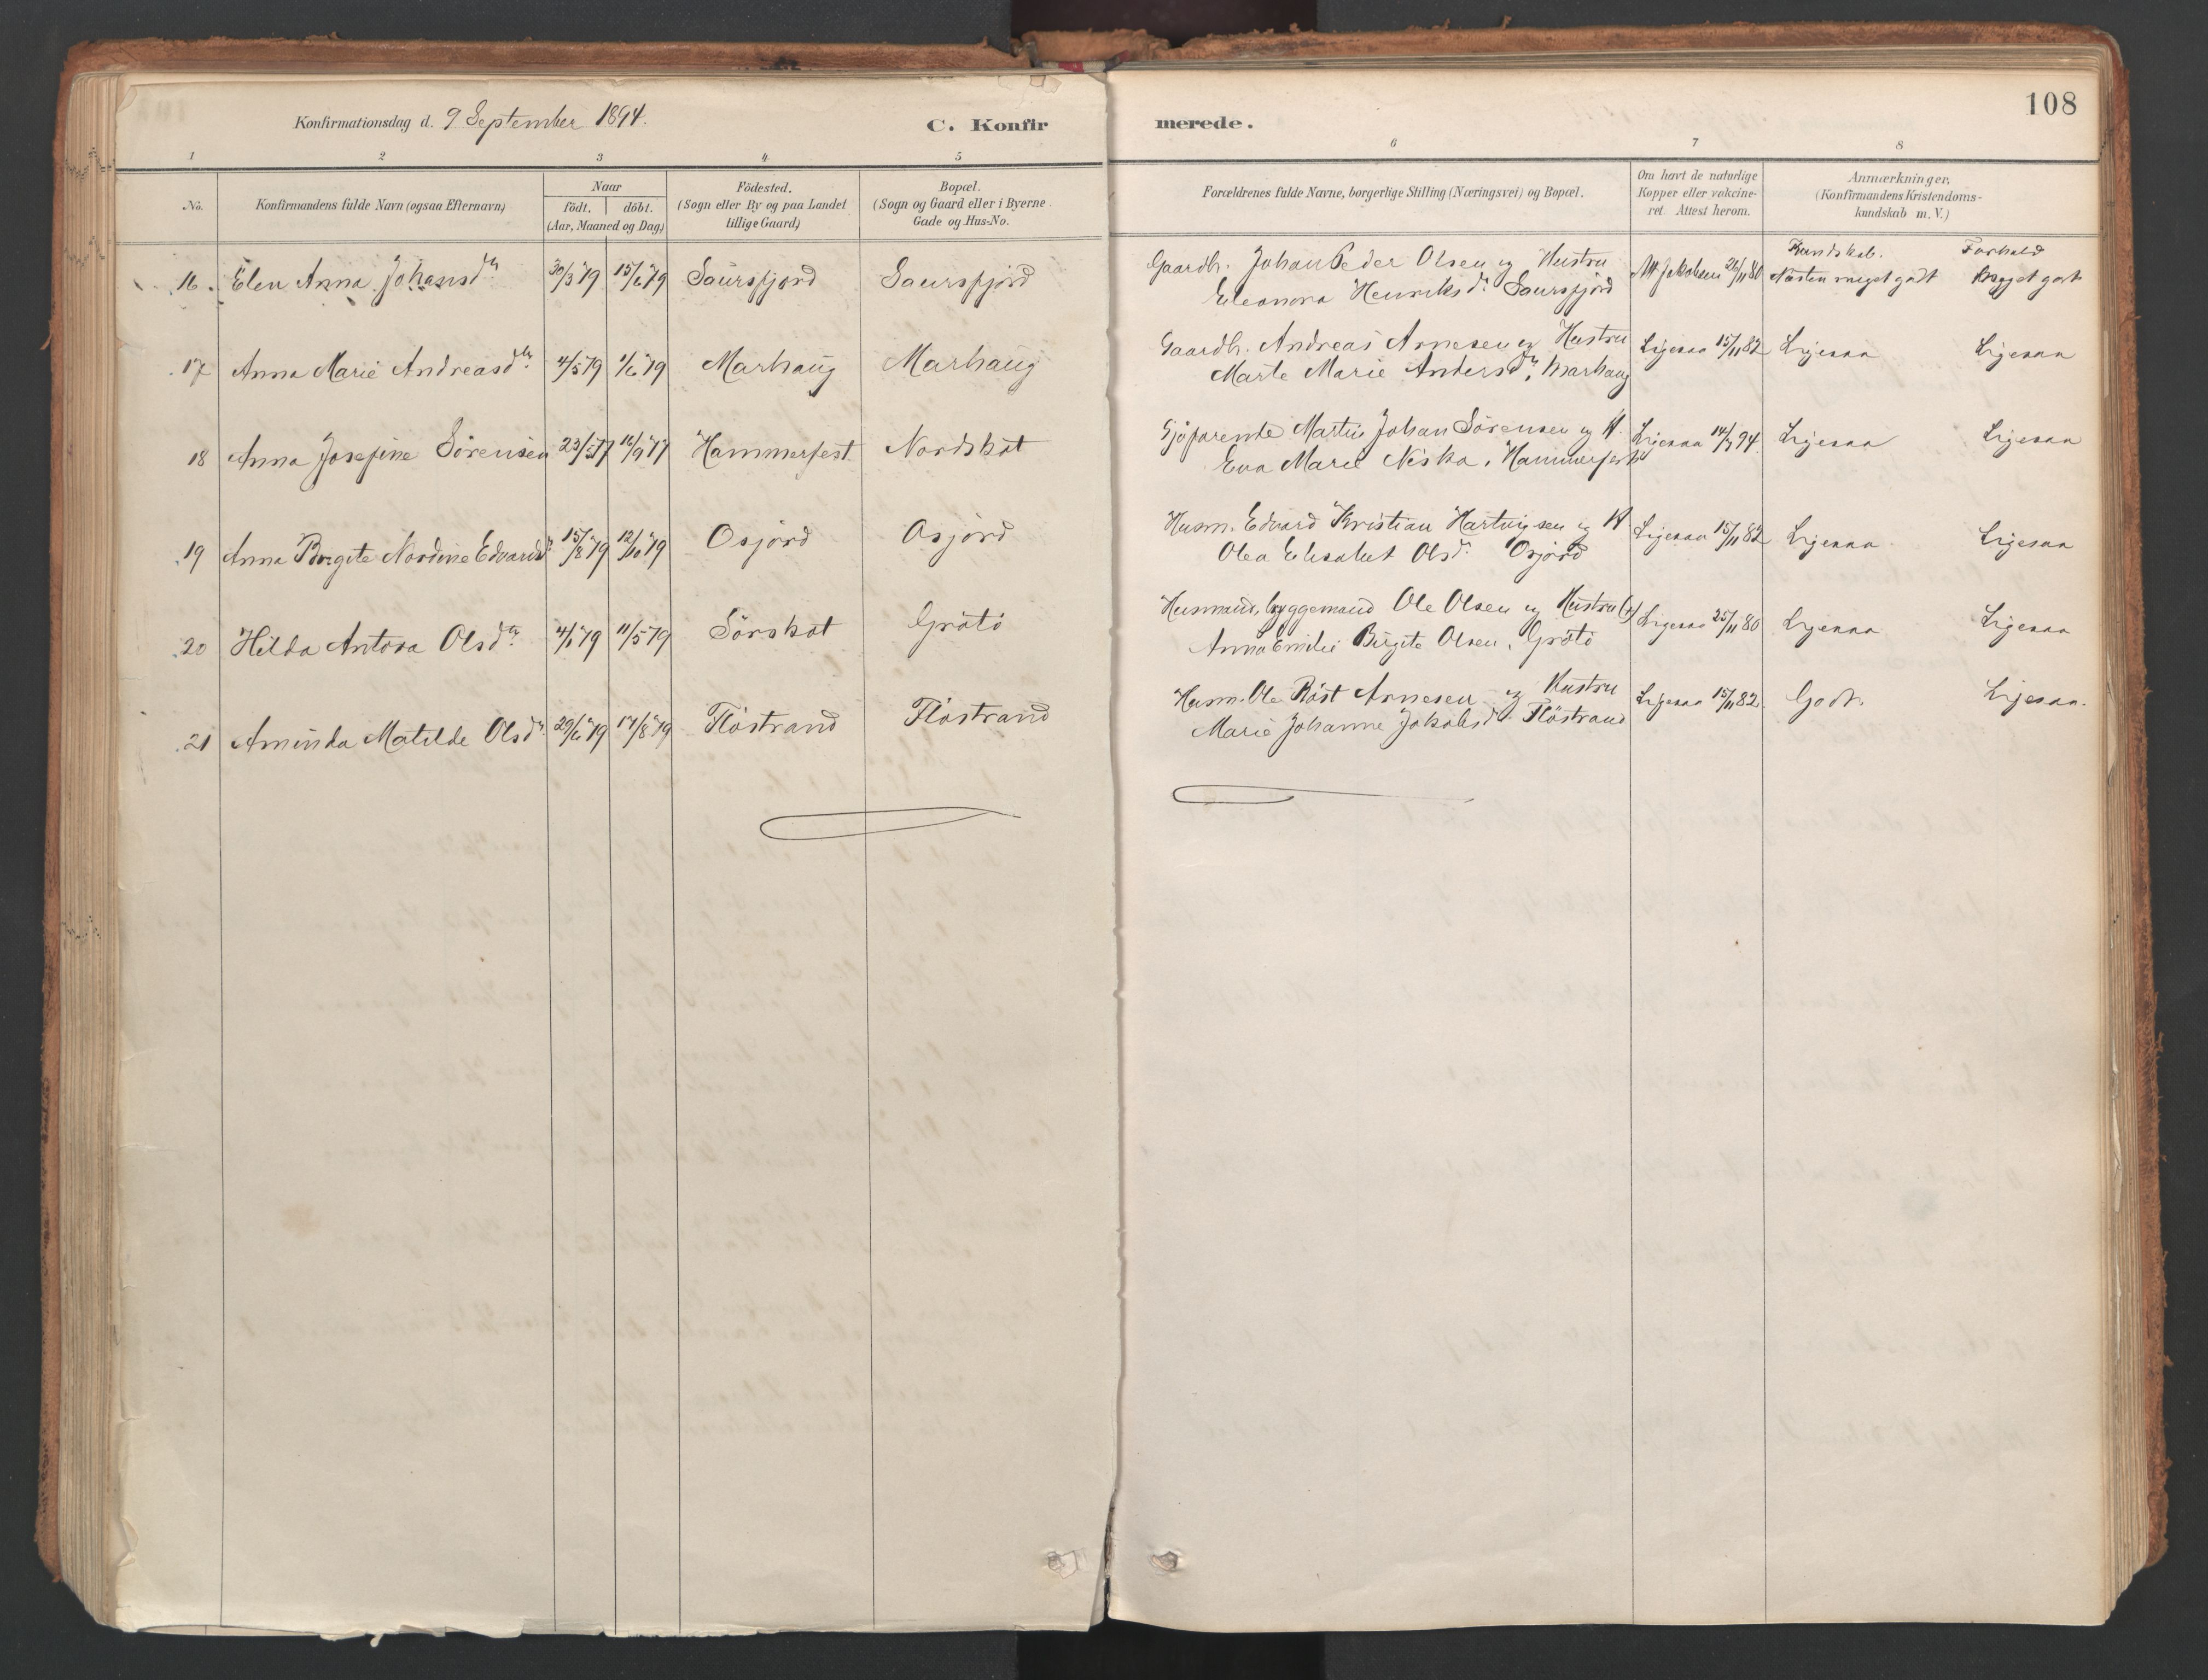 Konfirmationsdag d. 9 September 1894.
C. Konfir
merede.
108
1 2 3 4 5 6 7 8
No.
Konfirmandens fulde Navn (ogsaa Efternavn)
Naar
födt. | döbt.
(Aar, Maaned og Dag)
Födested.
(Sogn eller By og paa Landet
tillige Gaard)
Bopæl.
(Sogn og Gaard eller i Byerne
Gade og Hus-No.
Forældrenes fulde Navne, borgerlige Stilling (Næringsvei) og Bopæl.
Om havt de naturlige
Kopper eller vakcine-
ret. Attest herom.
Anmærkninger,
(Konfirmandens Kristendoms-
kundskab m. V.)
Kundskab. Forhold
16. Elen Anna Johansdtr 30/3 79 15/6 79 Saursfjord Saursfjord
Gaardbr. Johan Peder Olsen og Hustru
Eleonora Henriksdr Saursfjord
Att Jakobsen 26/11 80 Næsten meget godt Meget godt
17 Anna Marie Andreasdtr 4/5 79 1/6 79 Marhaug Marhaug
Gaardbr. Andreas Arnesen og Hustru
Marte Marie Andersdr, Marhaug
Ligesaa 15/11 82 Ligesaa Ligesaa
18 Anna Josefine Sörensen 23/5 77 16/9 77 Hammerfest Nordskot
Sjöfarende Martin Johan Sörensen og H.
Eva Marie Niska, Hammerfest
Ligesaa 14/7 94 Ligesaa Ligesaa
19 Anna Birgite Nordine Edvardsdr 15/8 79 12/10 79 Osjord Osjord
Husm. Edvard Kristian Hartvigsen og H.
Olea Elisabet Olsdr Osjord
Ligesaa 15/11 82 Ligesaa Ligesaa
20 Hilda Antora Olsdtr 4/1 79 11/5 79 Sörskot Grötö
Husmand, byggemand Ole Olsen og Hustru
Anna Emilie Birgite Olsen, Grötö
Ligesaa 25/11 80 Ligesaa Ligesaa
21 Aminda Matilde Olsdr 29/6 79 17/8 79 Flöstrand Flöstrand
Husm. Ole Röst Arnesen og Hustru
Marie Johanne Jakobsdr Flöstrand
Ligesaa 15/11 82. Godt. Ligesaa.